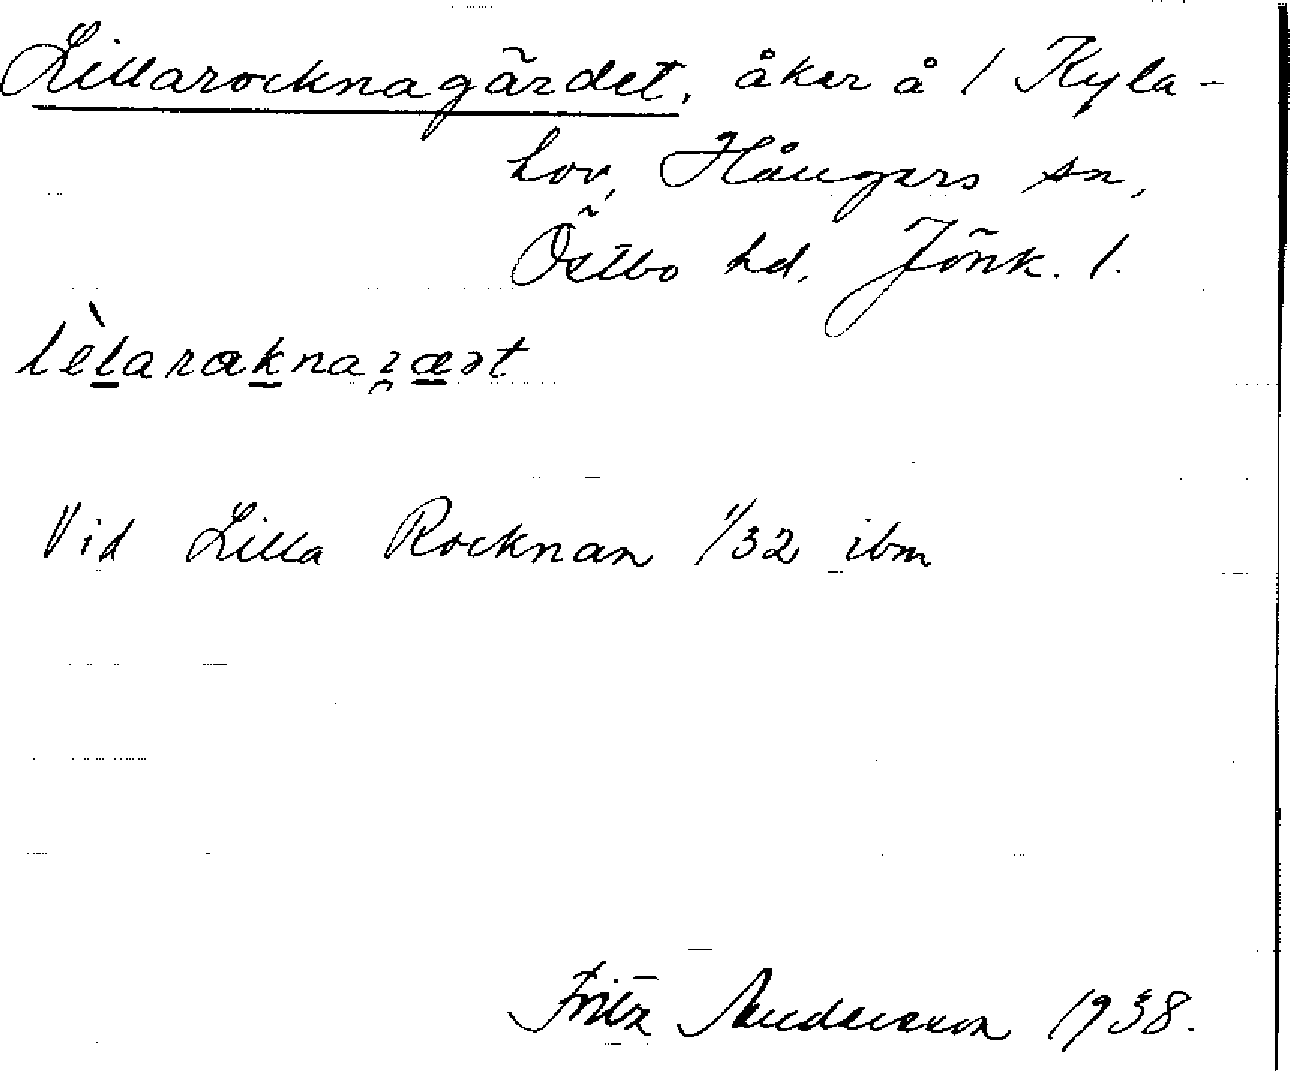 Lillarocknagärdet, åker å 1 Kyla-
hov, Hångers sn,
Östbo hd. Jönk. l.
lèlaraknaʒæət
Vid Lilla Rocknan 1/32 ibm
Fritz Andersson 1938.